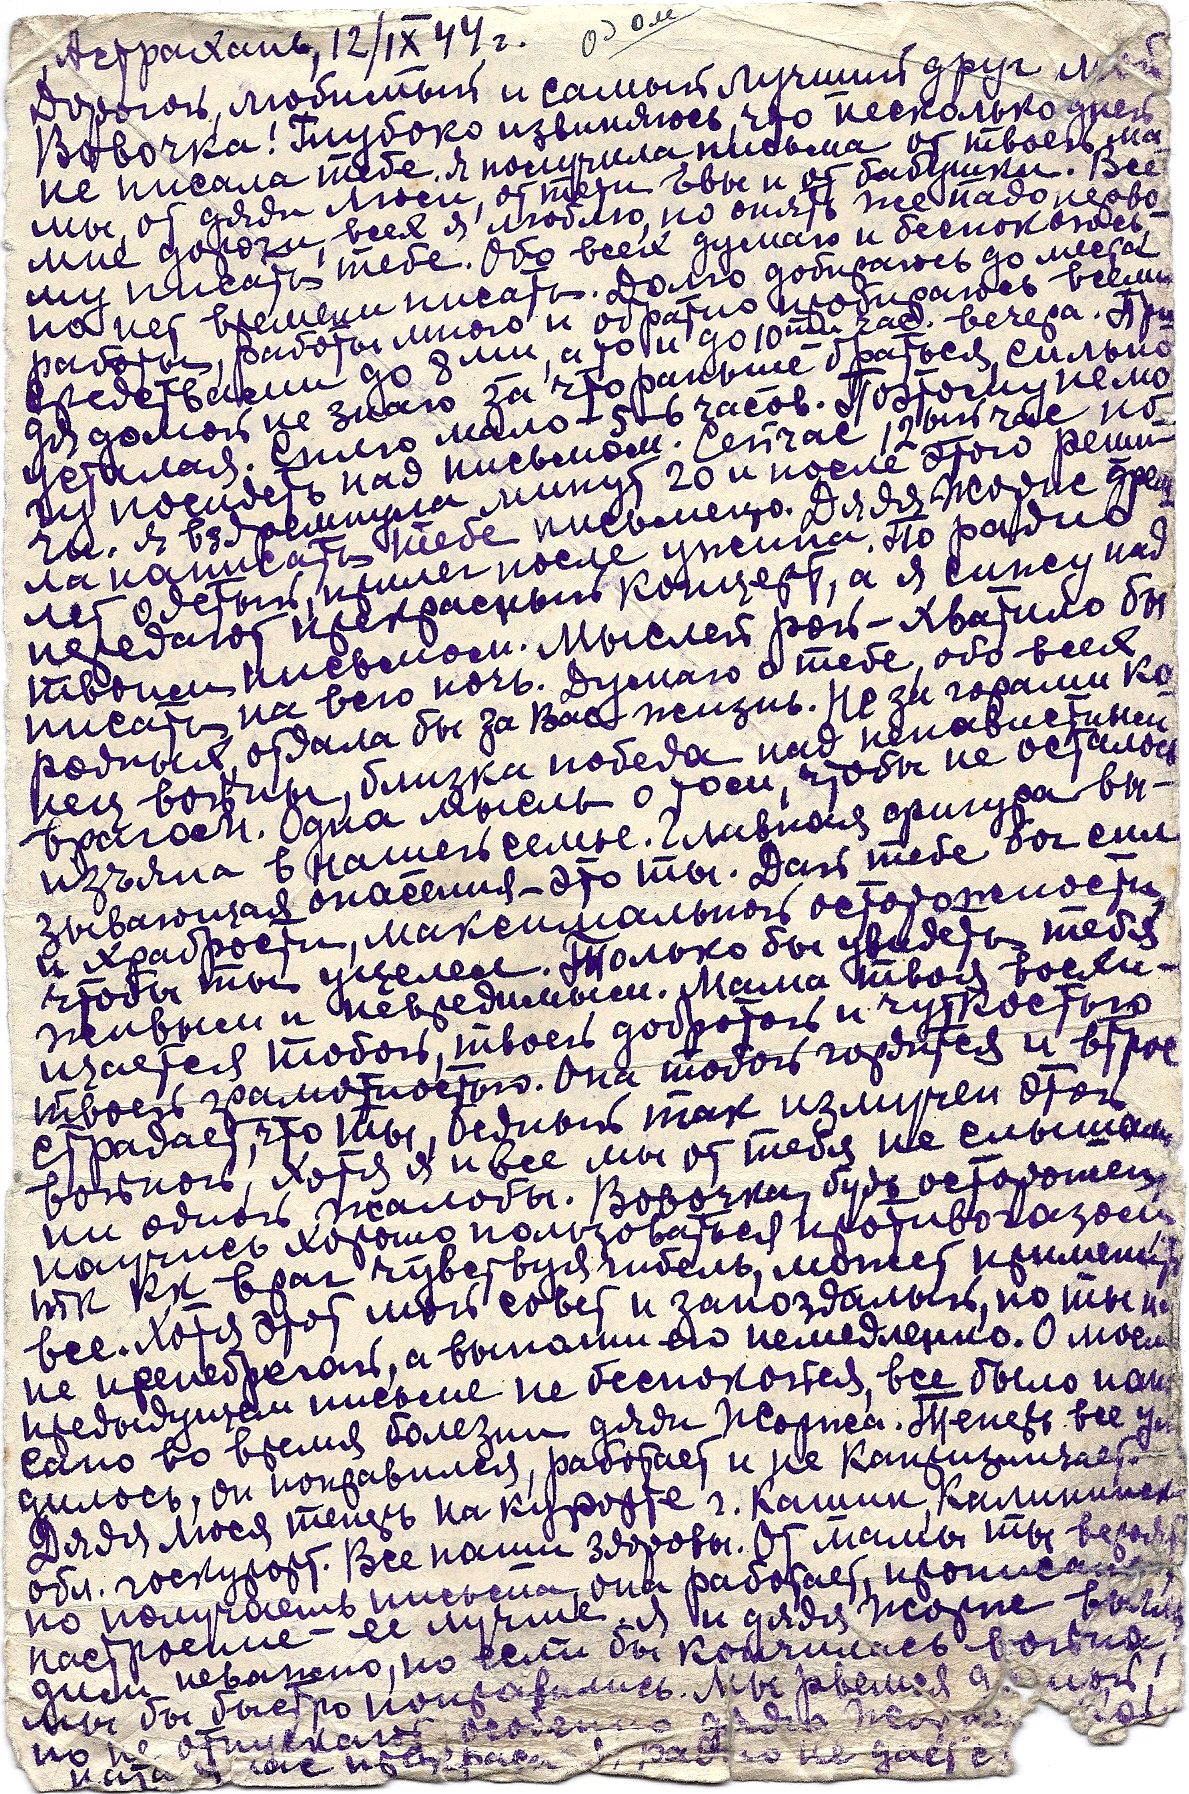 Астрахань, 12/IX 44 г.
Дорогой, любимый и самый лучший друг мой
Вовочка! Глубоко извиняюсь, что несколько дней
не писала тебе. Я получила письма от твоей ма
мы, от дяди Люси, от тети Евы и от бабушки. Все
мне дороги, всех я люблю, но опять же надо перво
му писать тебе. Обо всех думаю и беспокоюсь,
но нет времени писать. Долго добираюсь до места
работы, работы много и обратно пробираюсь всеми
средствами до 8 ми, а то и до 10ти час. вечера. При
дя домой не знаю за что раньше браться, сильно
усталая. Сплю мало – 5-6 часов. Поэтому не мо
гу посидеть над письмом. Сейчас 12 ый час но
чи. Я вздремнула минут 20 и после этого реши-
ла написать тебе письмецо. Дядя Жорж дрем
лет одетый, прилег после ужина. По радио
передают прекрасный концерт, а я сижу над
твоим письмом. Мыслей рой – хватило бы
писать на всю ночь. Думаю о тебе, обо всех
родных, отдала бы за Вас жизнь. Не за горами ко
нец войны, близка победа над ненавистным
врагом. Одна мысль о том, чтобы не осталось
изъяна в нашей семье. Главная фигура вы-
зывающая опасения – это ты. Дай тебе бог сил
и храбрости, максимальной осторожности,
чтобы ты уцелел. Только бы увидеть тебя
живым и невредимым. Мама твоя восхи-
щается тобой, твоей добротой и чуткостью
твоей грамотностью. Она тобой гордится и втрое
страдает, что ты, бедный так измучен этой
войной, хотя я и все мы от тебя не слышали
ни одной жалобы. Вовочка, будь осторожен,
научись хорошо пользоваться противогазом,
тк кк враг чувствуя гибель, может применить
все. Хотя этот мой совет и запоздалый, но ты им
не пренебрегай, а выполни его немедленно. О моем
предыдущем письме не беспокойся, все было напи
сано во время болезни дяди Жоржа. Теперь все ула
дилось, он поправился, работает и не капризничает.
Дядя Люся теперь на курорте г. Кашин, Калининск.
обл. госкурорт. Все наши здоровы. От мамы ты вероят
но получаешь письма, она работает, прописана,
настроение – ее лучше. Я и дядя Жорж выгля
дим неважно, но если бы кончилась война,
мы бы быстро поправились. Мы рвемся домой,
но не отпускают, особенно дядю Жоржа.
не дает